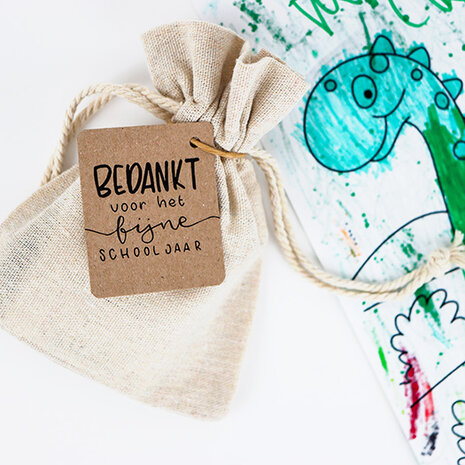 BEDANKT
voor het
fijne
SCHOOLJAAR